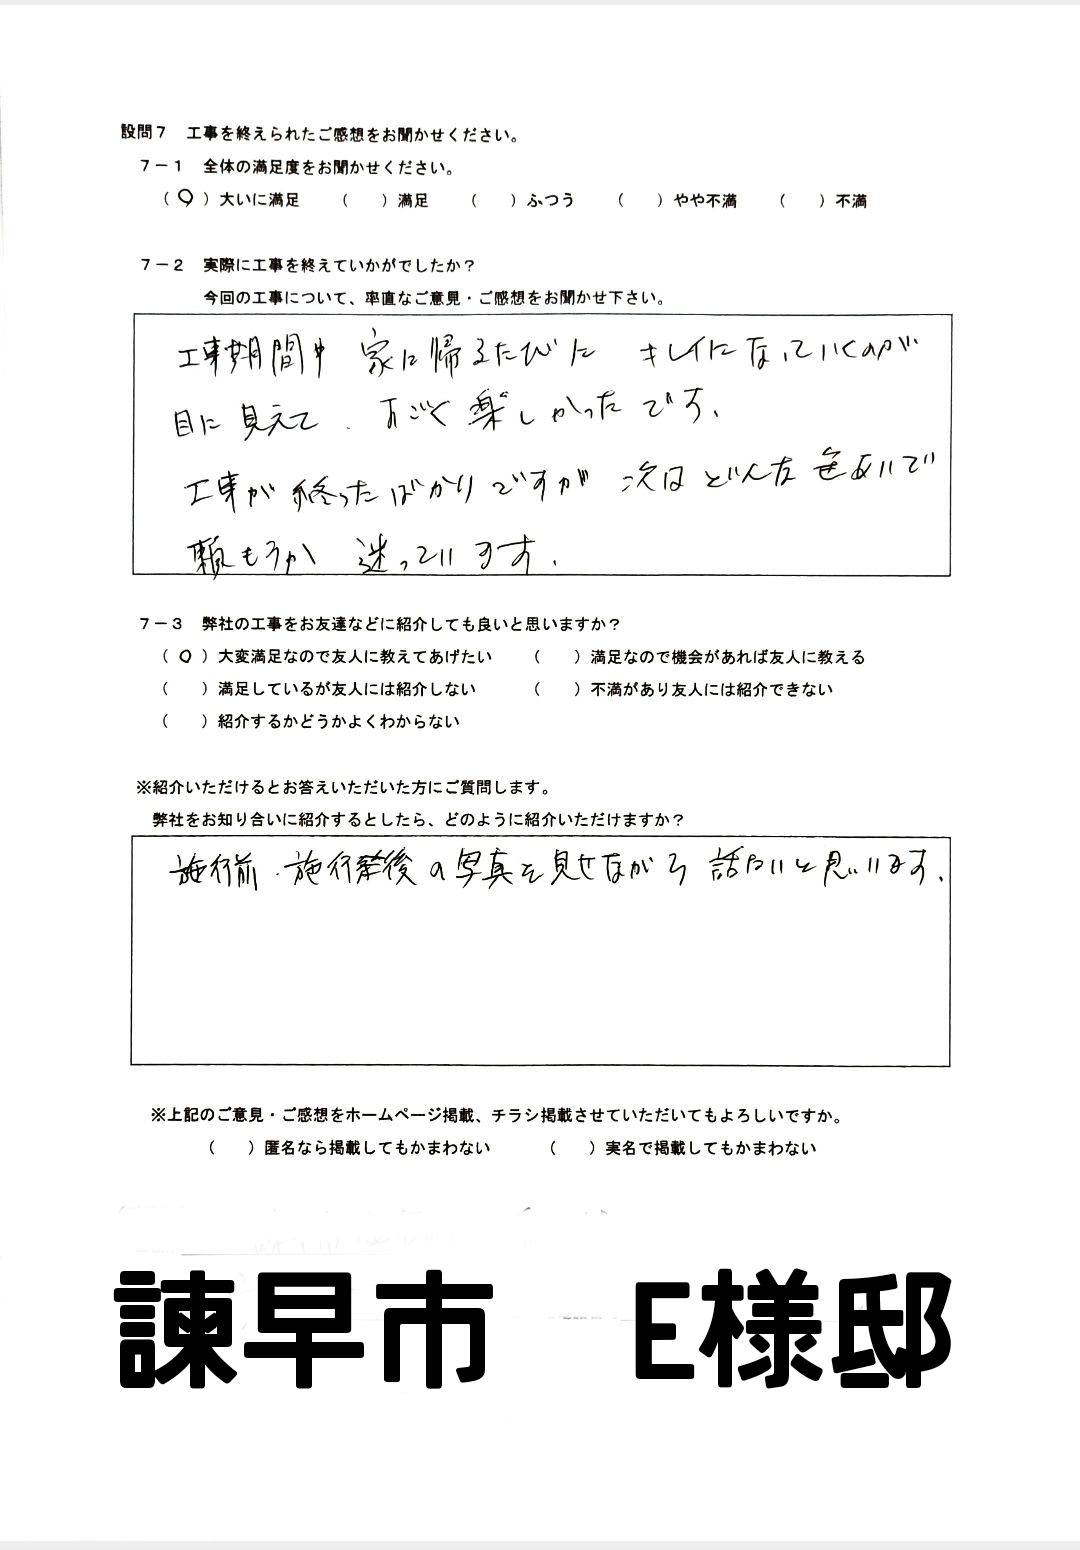 設問７　工事を終えられたご感想をお聞かせください。
７－１　全体の満足度をお聞かせください。
（○）大いに満足　（　）満足　（　）ふつう　（　）やや不満　（　）不満
７－２　実際に工事を終えていかがでしたか？
今回の工事について、率直なご意見・ご感想をお聞かせ下さい。
工事期間中 家に帰るたびに キレイになっていくのが
目に見えて、すごく楽しかったです。
工事が終ったばかりですが 次はどんな色あいで
頼もうか 迷っています。
７－３　弊社の工事をお友達などに紹介しても良いと思いますか？
（○）大変満足なので友人に教えてあげたい　（　）満足なので機会があれば友人に教える
（　）満足しているが友人には紹介しない　（　）不満があり友人には紹介できない
（　）紹介するかどうかよくわからない
※紹介いただけるとお答えいただいた方にご質問します。
弊社をお知り合いに紹介するとしたら、どのように紹介いただけますか？
施行前・施行後の写真を見せながら 話たいと思います。
※上記のご意見・ご感想をホームページ掲載、チラシ掲載させていただいてもよろしいですか。
（　）匿名なら掲載してもかまわない　（　）実名で掲載してもかまわない
諫早市　E様邸